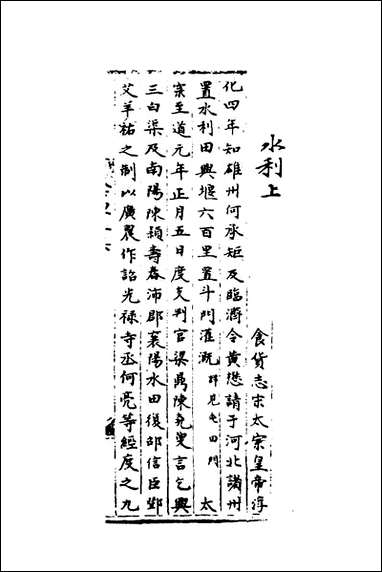 水利上
食貨志宋太宗皇帝淳
化四年知雄州何承矩及臨濟令黃懋請于河北諸州
置水利田興堰六百里置斗門灌溉詳見屯田門 太
宗至道元年正月五日度支判官梁鼎陳堯叟言乞興
三白渠及南陽陳潁壽春沛郡襄陽水田復邵信臣鄧
艾羊祐之制以廣農作詔光祿寺丞何亮等經度之九